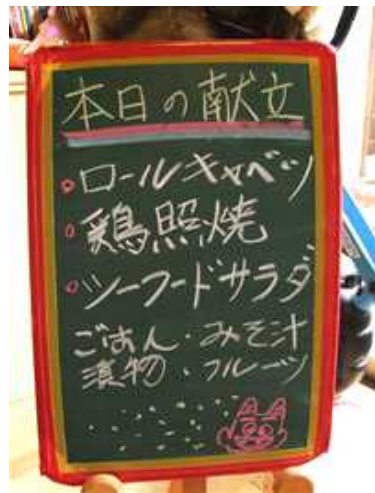 本日の献立
ロールキャベツ
鶏照焼
シーフードサラダ
ごはん・みそ汁
漬物・フルーツ